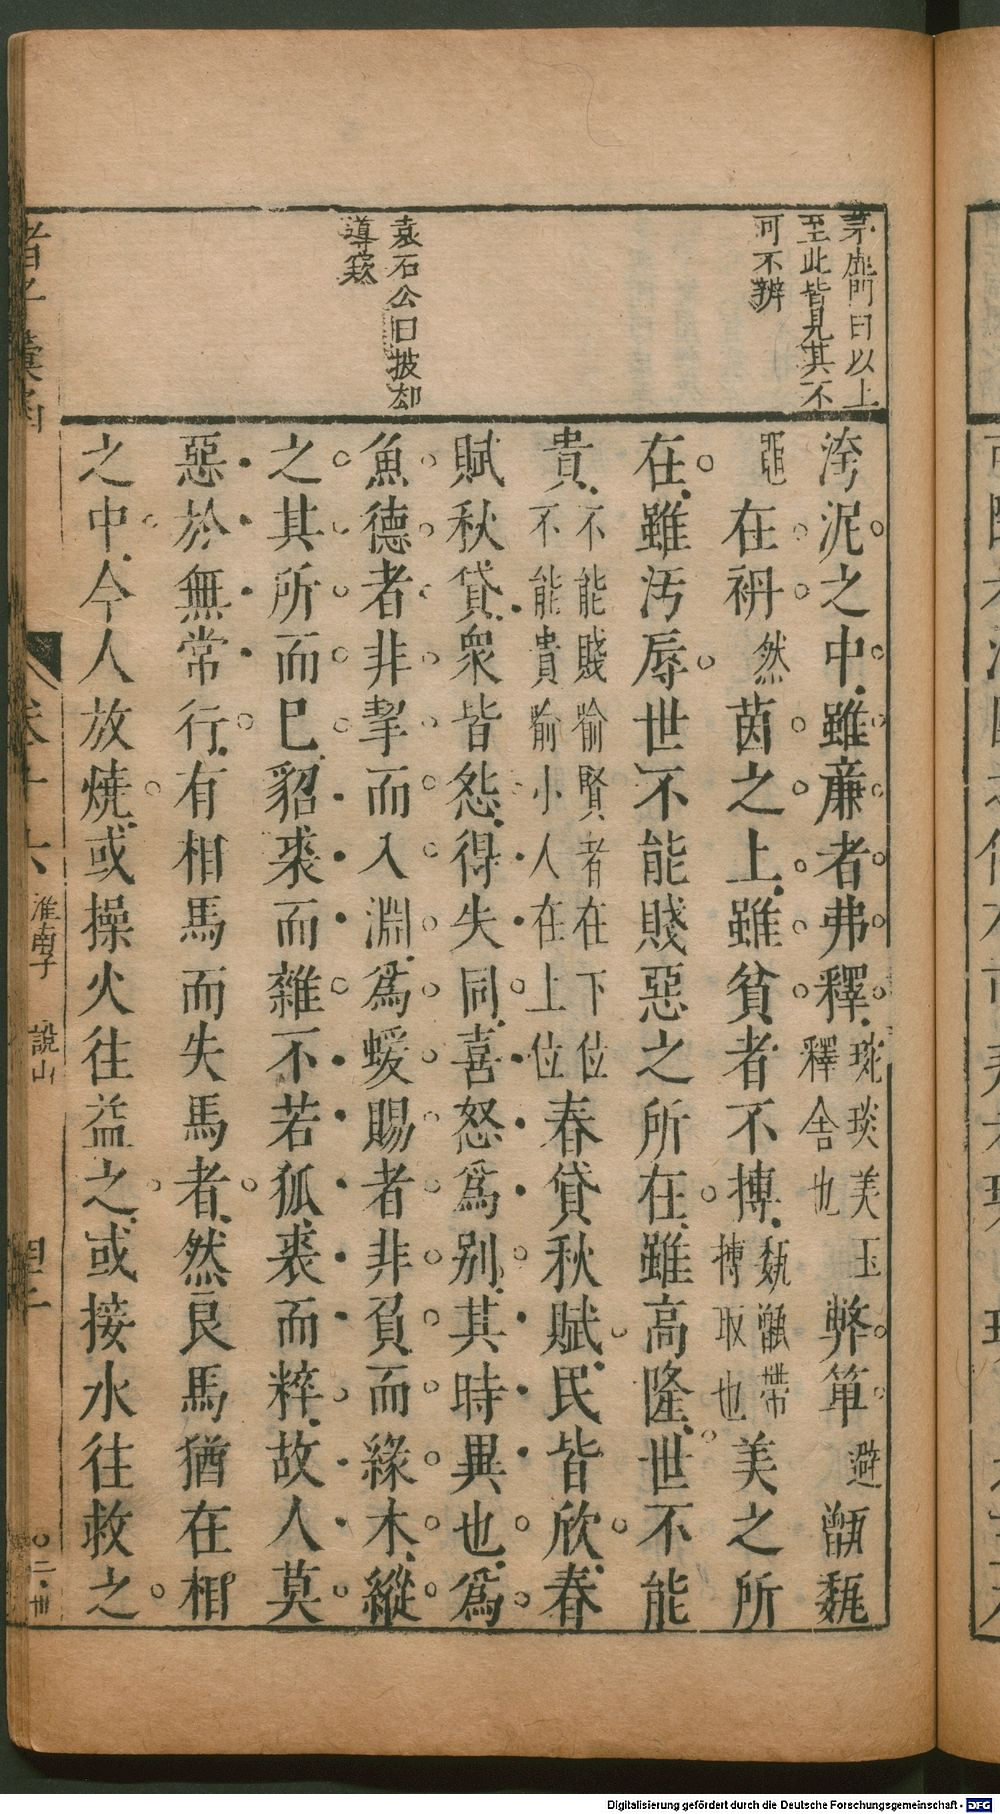 茅鹿門曰以上
至此皆見其不
可不辨
袁石公曰披却
導窾
洿泥之中雖亷者弗釋琬琰美玉釋舍也弊箄避甑瓾
黽在袡然茵之上雖貧者不摶瓾甑帶摶取也美之所
在雖汚辱世不能賤惡之所在雖高隆世不能
貴不能賤喻賢者在下位不能貴喻小人在上位春貸秋賦民皆欣春
賦秋貸衆皆怨得失同喜怒爲别其時異也爲
魚德者非挈而入淵爲蝯賜者非負而緣木縱
之其所而巳貂裘而雜不若狐裘而粹故人莫
惡於無常行有相馬而失馬者然良馬猶在相
之中今人放燒或操火往益之或接水往救之
諸子彙函
卷十六 淮南子 說山 四十 〇二·世
Digitalisierung gefördert durch die Deutsche Forschungsgemeinschaft - DFG